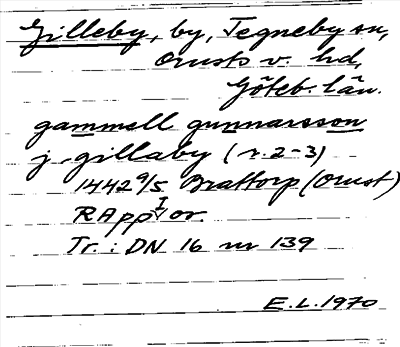 Gilleby, by, Tegneby sn,
Orusts v. hd,
Göteb. län.
gammell gunnarsson
j gillaby (r. 2-3)
1442 9/5 Brattorp (Orust)
RAppI or.
Tr.: DN 16 nr 139
E.L. 1970